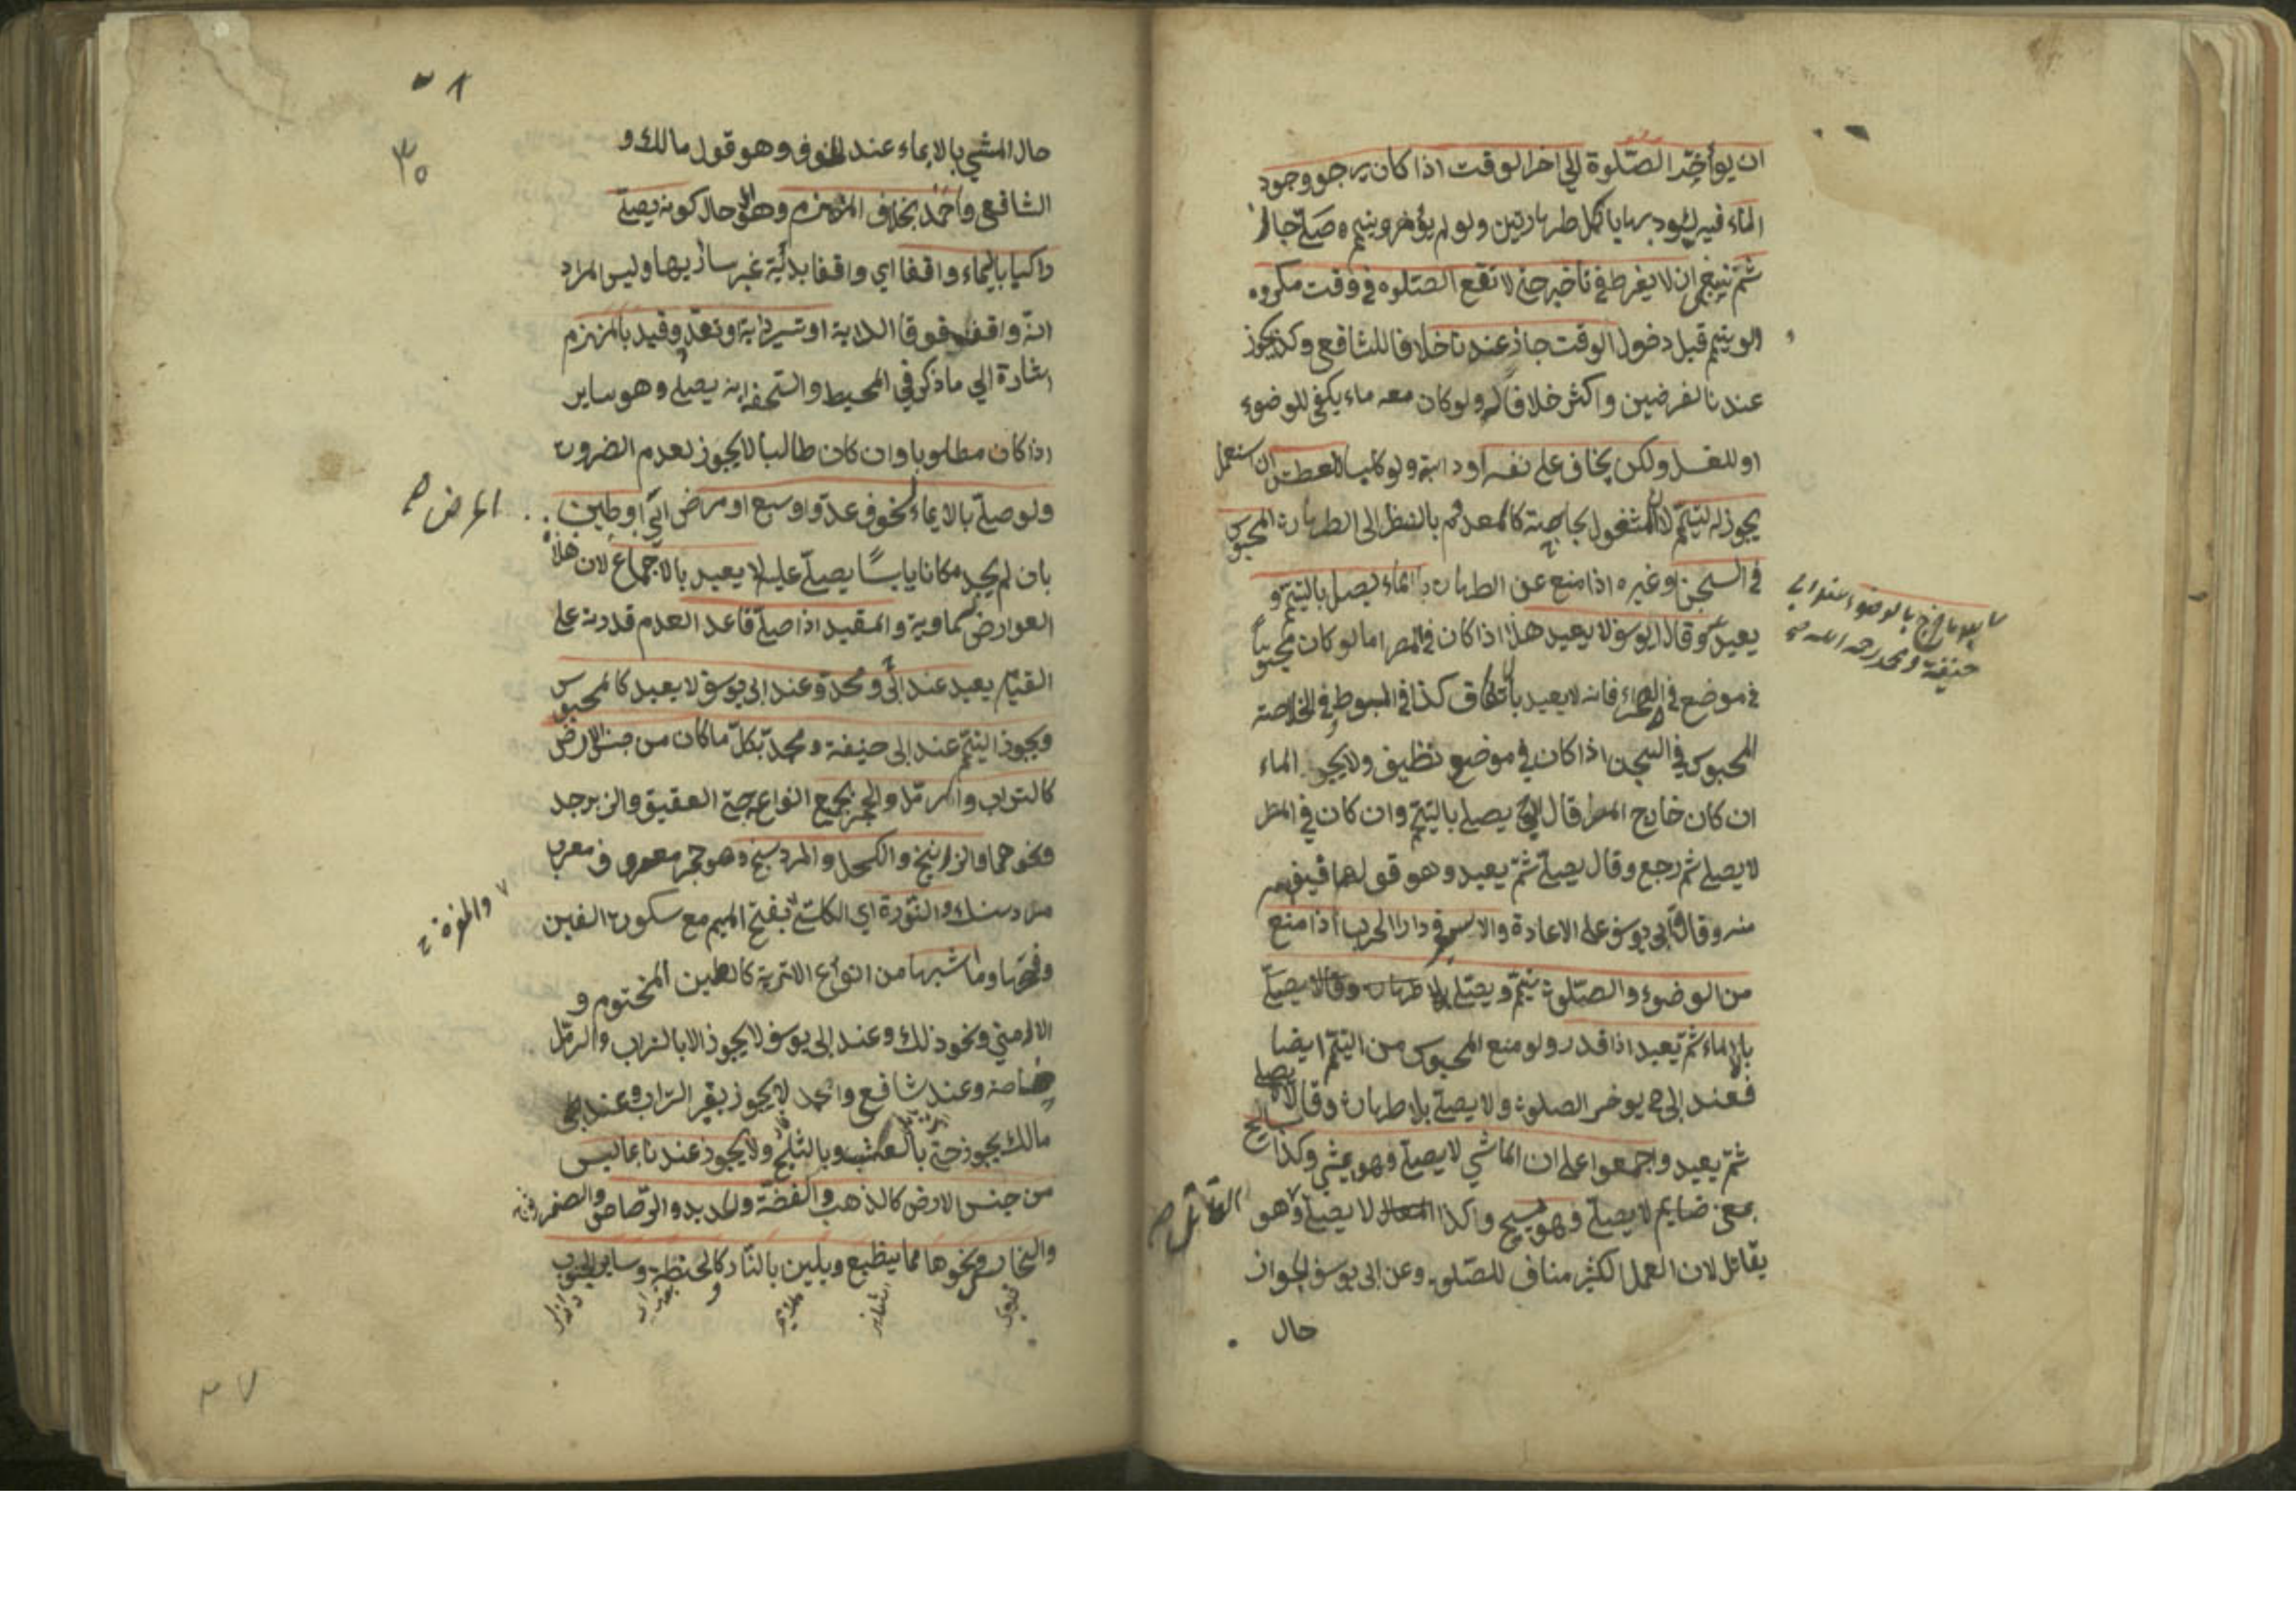 ان يوأخّر الصّلوة الى اخر الوقت اذا كان يرجو وجود
الماء فيه ليؤديها باكمل طهارتين ولو لم يؤخر ويتيمم وصلّى جاز
ثمّ ينبغي ان لا يفرط في تأخير حتى لا تقع الصّلوة في وقت مكروه
ولو يتيمّم قبل دخول الوقت جاز عندنا خلافا للشافعي وكذا يجوز
عندنا لفرضين واكثر خلافا له ولو كان معه ماء يكفي للوضوء
او للغسل ولكن يخاف على نفسه او دابته ولو كلبا للعطش ان استعمل
يجوز له ليتيمّم لان المشغول بحاجته كالمعدوم بالنظر الى الطهارة المحبوس
في السجن او غيره اذا منع عن الطهارة بالماء يصلى بالتيمّم و
يعيد وقال ابو يوسف لا يعيد هذا اذا كان في المصر اما لو كان محبوسا
في موضع في الصحراء فانه لا يعيد بالاتفاق كذا في المبسوط وفي الخلاصة
المحبوس في السجن اذا كان في موضع نظيف ولا يجد الماء
ان كان خارج المصر قال يصلى بالتيمّم وان كان في المصر
لا يصلى ثم رجع وقال يصلّى ثمّ يعيد وهو قولهما
منه وقال ابى يوسف على الاعادة والاسير في دار الحرب اذا منع
من الوضوء والصّلوة يتيمّم ويصلّى
بالايماء ثمّ يعيد اذا قدر ولو منع المحبوس من التيمّم ايضا
فعند ابى ح يوخر الصلوة ولا يصلى بلا طهارة وقالا يصلى
ثمّ يعيد واجمعوا على ان الماشي لا يصلّى وهو يمشي وكذا السابح
بمعنى لا يصلّى وهو يسبح وكذا لا يصلّى وهو
يقاتل لان العمل الكثير مناف للصّلوة وعن ابى يوسف الجواز
حال
حنيفة ومحمد رحمه الله
المقاتل صح
٣٠
حال المشي بالايماء عند الخوف وهو قول مالك و
الشافعي واحمد بخلاف المنهزم وهو حال كونه يصلّى
راكبا بايماء واقفا اي واقفا بدابّة غير سائر بها وليس المراد
انّه واقف فوق الدابة او تسير دابته وتعدو وقيد بالمنهزم
اشارة الى ما ذكر في المحيط والتحفة انه يصلى وهو ساير
اذا كان مطلوبا وان كان طالبا لا يجوز لعدم الضرورة
ولو صلّى بالايماء لخوف عدوّ او سبع او مرض او طين
بان لم يجد مكانا يابسًا يصلّى عليه لا يعيد بالاجماع لان هذا
العوارض سماوية والمقيد اذا صلّى قاعدا لعدم قدرته على
القيام يعيد عند ابى ح ومحمد وعند ابى يوسف لا يعيد كالمحبوس
ويجوز التيمّم عند ابى حنيفة ومحمد بكلّ ما كان من جنس الارض
كالتراب والرمل والحجر بجميع انواعه حتى العقيق والزبرجد
ونحوهما والزرنيخ والكحل والمردسنج وهو حجر معروف معرب
مردسنك والنّورة اي الكلس بفتح الميم مع سكون الغين
وفتحها وما اشبهها من انواع الاتربة كالطين المختوم و
الارمني ونحو ذلك وعند ابى يوسف لا يجوز الا بالتراب والرمل
خاصة وعند شافعي واحمد لا يجوز بغير التراب وعند
مالك يجوز حتى بالعشب وبالثلج ولا يجوز عندنا بما ليس
من جنس الارض كالذهب والفضّة والحديد والرّصاص والصفر
والنحاس ونحوها مما ينطبع ويلين بالنّار وكالحنطة وساير الحبوب
العارض صح
والمغرة
٣٧